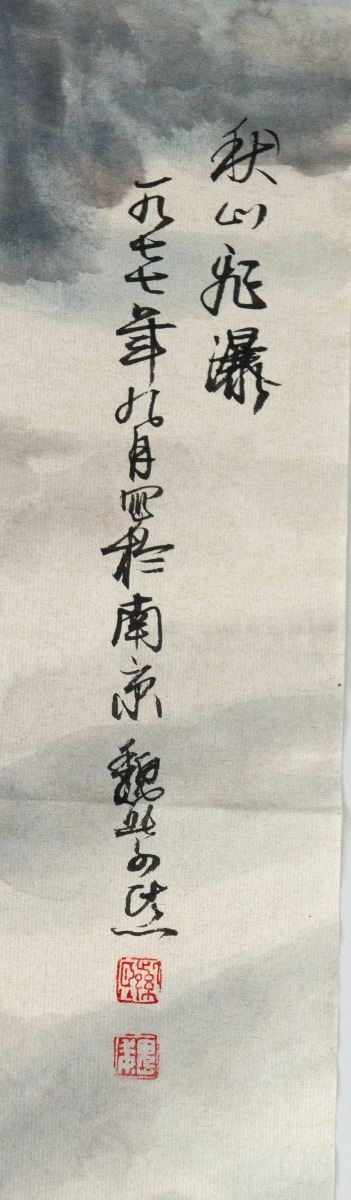 秋山飛瀑
一九七七年九月於南京 魏紫熙